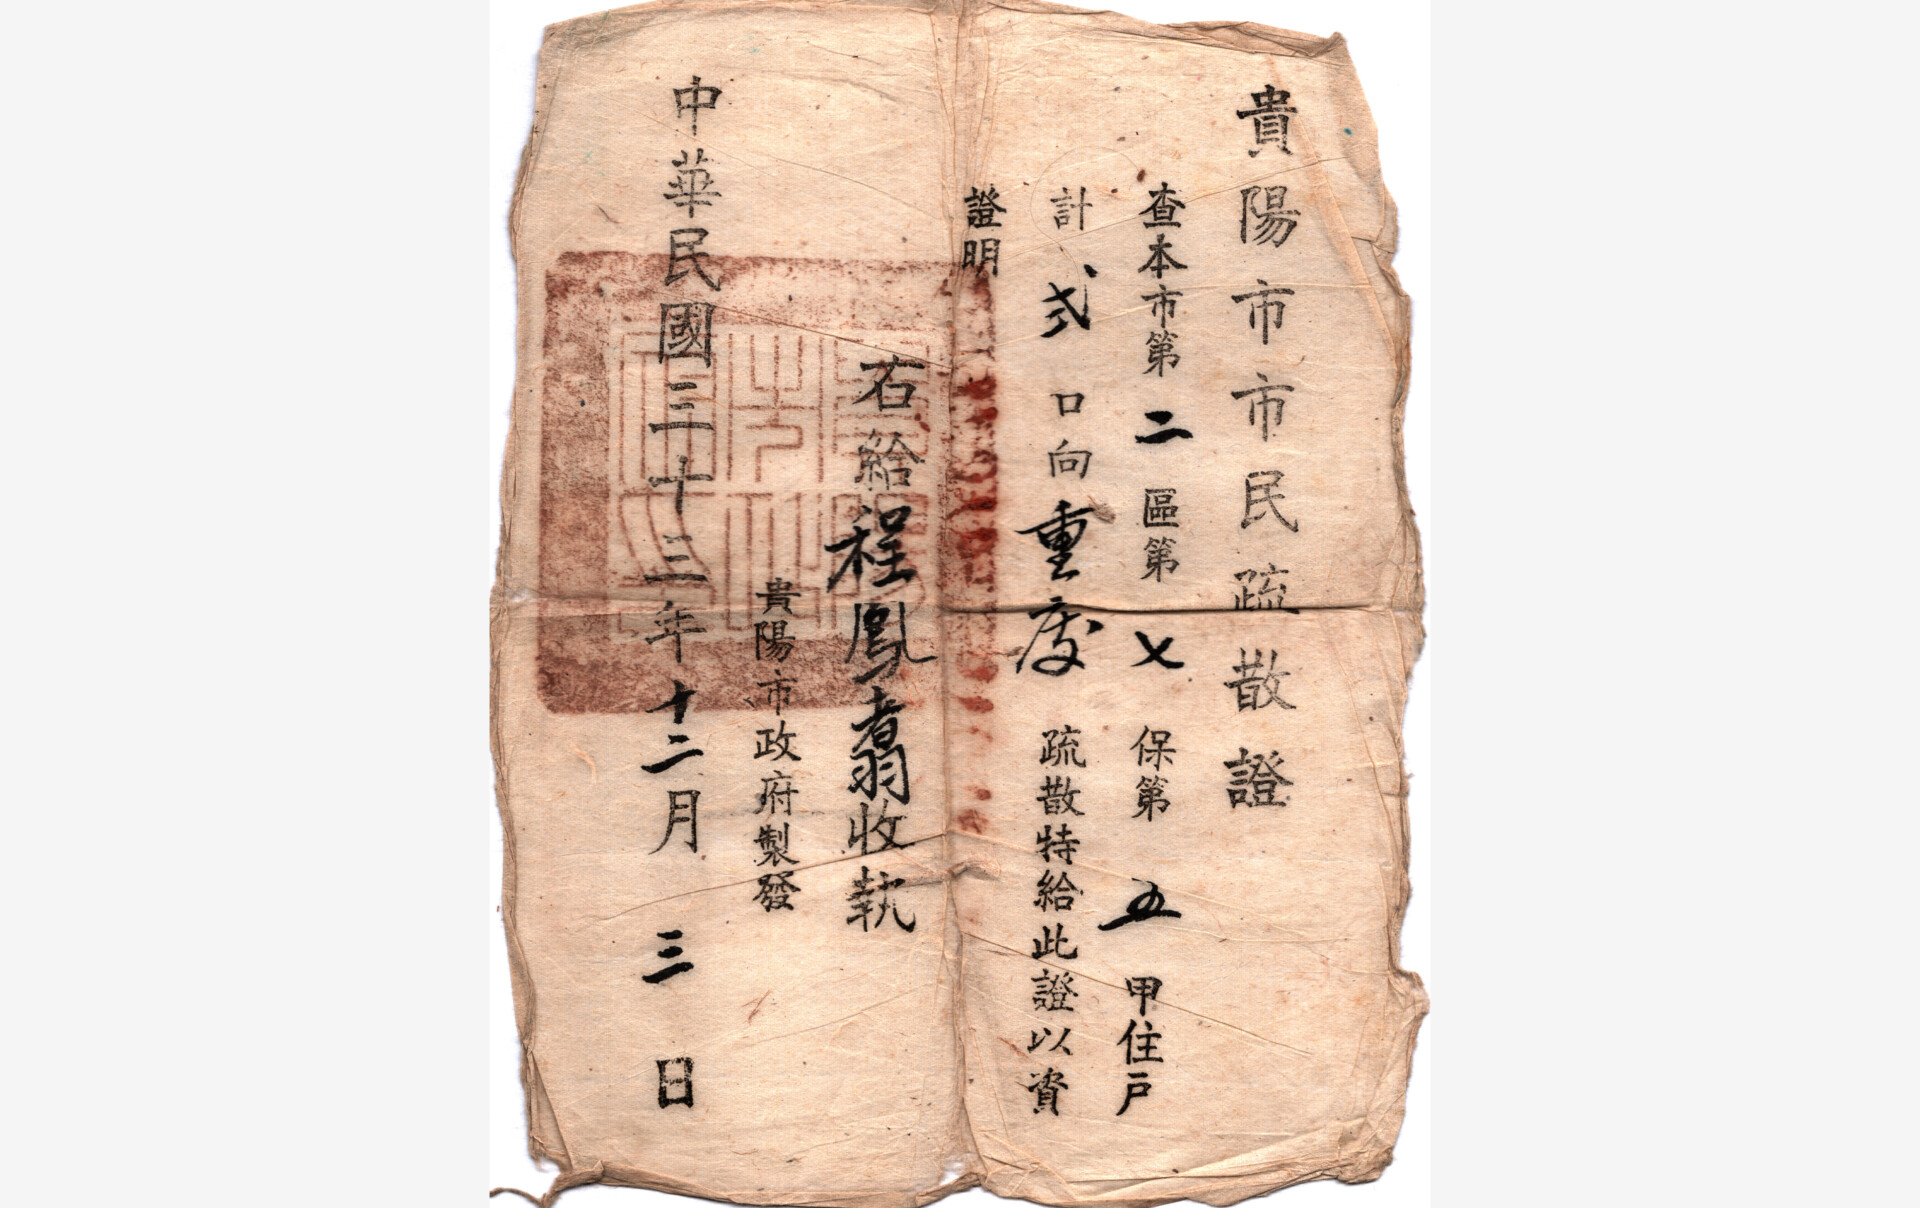 貴陽市市民疏散證
查本市第二區第七保第五甲住戶
計弍口向重慶疏散特給此證以資
證明
右給程鳳翥收執
貴陽市政府製發
中華民國三十三年十二月三日